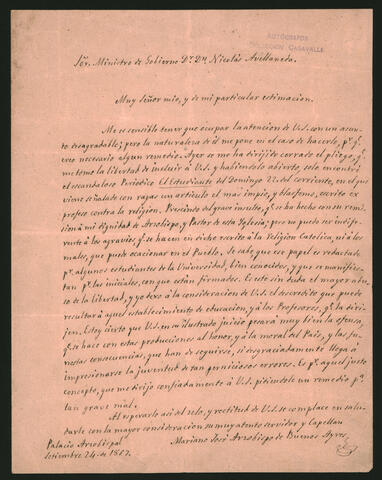 AUTÓGRAFOS
CASAVALLE
Sõr. Ministro de Gobierno Dr. Dn. Nicolás Avellaneda.
Muy Señor mio, y de mi particular estimacion.
Me es sensible tener que ocupar la atencion de V.S. con un asun-
to desagradable; pero la naturaleza de él me pone en el caso de hacerlo, pr. q.e
creo necesario algun remedio. Ayer se me ha dirijido cerrado el pliego, q.e
me tomo la libertad de incluir á V.S. y habiendolo abierto, solo encontré
el escandaloso Periodico El Estudiante del Domingo 22 del corriente, en el que
viene señalado con rayas un articulo el mas impio, y blasfemo, escrito ex
profeso contra la religion. Prescindo del grave insulto, q.e se ha hecho con su remi-
sion á mi dignidad de Arzobispo, y Pastor de esta Iglesia; pero no puedo ser indife-
rente á los agravios q.e se hacen en dicho escrito á la Religion Catolica, ni á los
males, que puede ocacionar en el Pueblo. Se sabe, que ese papel es redactado
pr. algunos estudiantes de la Universidad, bien conocidos, y que se manifies-
tan pr. las iniciales, con que están firmados. Es este sin duda el mayor abu-
so de la libertad, y yo dejo á la consideracion de V.S. el descredito que puede
resultar á aquel establecimiento de educacion, y á los Profesores, q.e la diri-
jen. Estoy cierto que V.S. en su ilustrado juicio pesará muy bien la ofensa,
q.e se hace con estas producciones al honor, y á la moral del País, y las fu-
nestas consecuencias, que han de seguirse, si desgraciadamente llega á
impresionarse la juventud de tan perniciosos errores. Es pr. aquel justo
concepto, que me dirijo confiadamente á V.S. pidiendole un remedio pa.
tan grave mal.
Al esperarlo asi del zelo, y rectitud de V.S. se complace en salu-
darle con la mayor consideracion su muy atento servidor y Capellan
Palacio Arzobispal
Setiembre 24 de 1867.
Mariano José Arzobispo de Buenos Ayres.